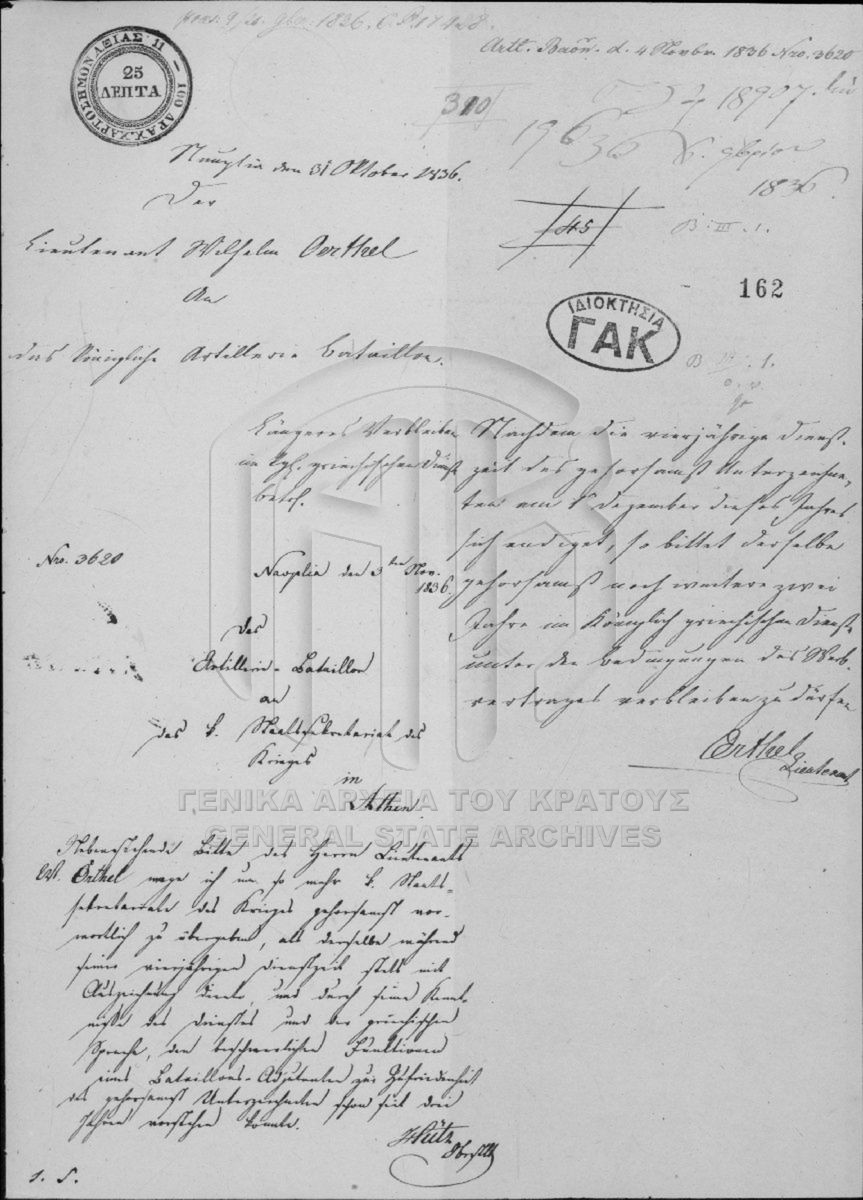 Artl. Baōn. d. 4 Novbr. 1836 Nro. 3620
ΧΑΡΤΟΣΗΜΟΝ ΑΞΙΑΣ 11 — 100 ΔΡΑΧ
25
ΛΕΠΤΑ
310
18907
1836
45
B. III. 1.
162
ΙΔΙΟΚΤΗΣΙΑ
ΓΑΚ
Nauplia den 31 Oktober 1836.
Der
Lieutenant Wilhelm Oerthel
An
das Königliche Artillerie Bataillon.
Längeres Verbleiben
im kgl. griechischen Dienste
betrf.
Nachdem die vierjährige Dienst-
zeit des gehorsamst Unterzeichne-
ten am 1t Dezember dieses Jahres
sich endiget, so bittet derselbe
gehorsamst noch weitere zwei
Jahre im Königlich griechischen Dienste
unter den Bedingungen des Werb-
vertrages verbleiben zu dürfen
Oerthel
Lieutenant
Nro. 3620
Nauplia den 3ten Nov.
1836.
Das
Artillerie-Bataillon
an
das k. Staatssekretariat des
Krieges
in
Athen.
ΓΕΝΙΚΑ ΑΡΧΕΙΑ ΤΟΥ ΚΡΑΤΟΥΣ
GENERAL STATE ARCHIVES
Nebenstehende Bitte des Herrn Lieutenants
W. Örthel wage ich um so mehr k. Staats-
sekretariate des Krieges gehorsamst vor-
wortlich zu übergeben, als derselbe während
seiner vierjährigen Dienstzeit stets mit
Auszeichnung diente, und durch seine Kennt-
niße des Dienstes und der griechischen
Sprache, den beschwerlichen Funktionen
eines Bataillons-Adjutanten zur Zufriedenheit
des gehorsamst Unterzeichneten schon seit drei
Jahren vorstehen konnte.
Hütz
Obristlt
1. S.